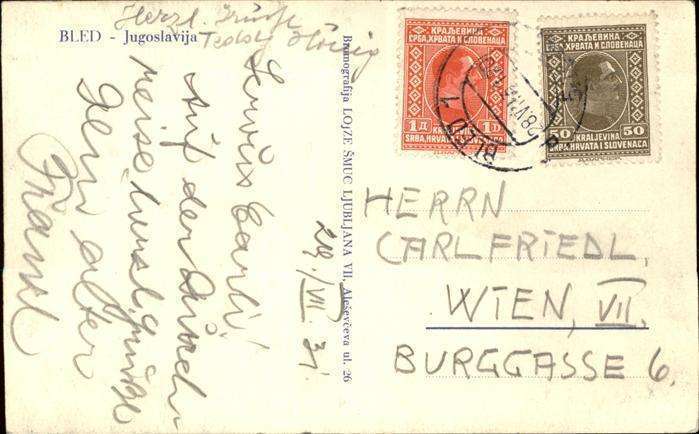 BLED - Jugoslavija
Herzl. Grüsse
Servus Carli!
Auf der Rückreise herzl. Grüsse
Dein alter
Franzl
29./VII. 31.
Bromografija LOJZE ŠMUC LJUBLJANA VII. Aleševčeva ul. 26
КРАЉЕВИНА
СРБА, ХРВАТА И СЛОВЕНАЦА
1Д 1D
KRALJEVINA
SRBA, HRVATA I SLOVENACA
КРАЉЕВИНА
СРБА, ХРВАТА И СЛОВЕНАЦА
50 KRALJEVINA 50
SRBA, HRVATA I SLOVENACA
BLED 1
HERRN
CARL FRIEDL,
WIEN, VII.
BURGGASSE 6.